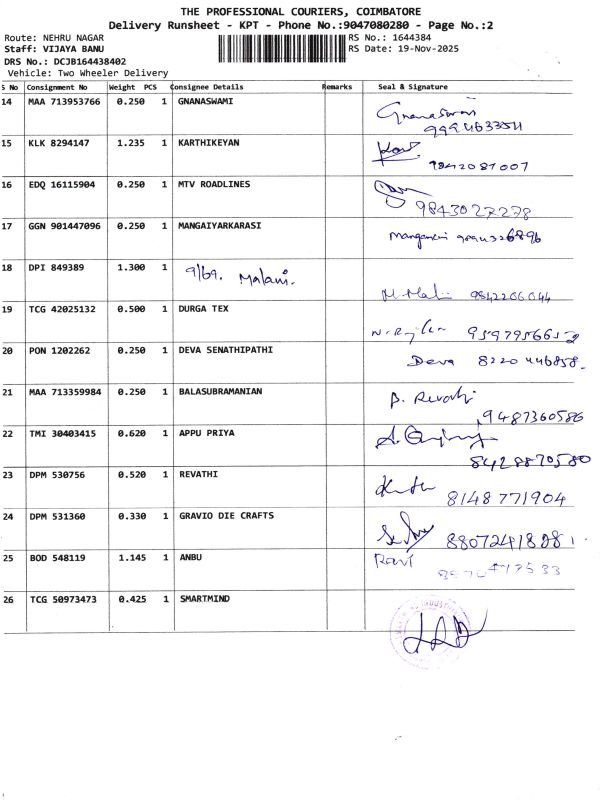 THE PROFESSIONAL COURIERS, COIMBATORE
Delivery Runsheet - KPT - Phone No.:9047080280 - Page No.:2
Route: NEHRU NAGAR RS No.: 1644384
Staff: VIJAYA BANU RS Date: 19-Nov-2025
DRS No.: DCJB164438402
Vehicle: Two Wheeler Delivery
S No Consignment No Weight PCS Consignee Details Remarks Seal & Signature
14 MAA 713953766 0.250 1 GNANASWAMI Gnanaswami
15 KLK 8294147 1.235 1 KARTHIKEYAN
9842081007
16 EDQ 16115904 0.250 1 MTV ROADLINES
9843027278
17 GGN 901447096 0.250 1 MANGAIYARKARASI
18 DPI 849389 1.300 1 9/69. Malani.
9842206044
19 TCG 42025132 0.500 1 DURGA TEX
9597956652
20 PON 1202262 0.250 1 DEVA SENATHIPATHI
Deva 8220446858.
21 MAA 713359984 0.250 1 BALASUBRAMANIAN B. Revathi
9487360586
22 TMI 30403415 0.620 1 APPU PRIYA
8428870580
23 DPM 530756 0.520 1 REVATHI
8148771904
24 DPM 531360 0.330 1 GRAVIO DIE CRAFTS
8807241828
25 BOD 548119 1.145 1 ANBU Ravi
26 TCG 50973473 0.425 1 SMARTMIND